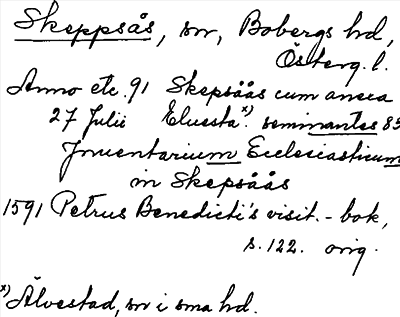 Skeppsås, sn, Bobergs hd,
Österg. l.
Anno etc. 91 Skepsåås cum anexa
27 Julii Eluesta x) seminantes 85
Inuentarium Ecclesiasticum
in Skepsåås
1591 Petrus Benedicti's visit.-bok,
s. 122. orig.
x) Älvestad, sn i sma hd.